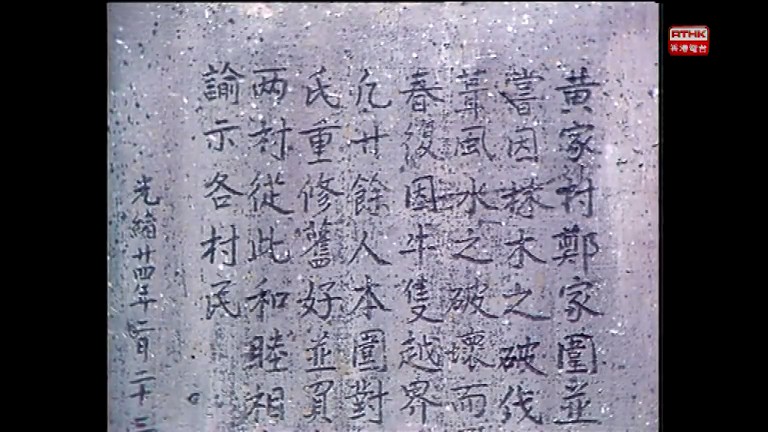 RTHK
香港電台
黃家村鄭家圍並
嘗因林木之砍伐
葺風水之破壞而
春復因牛隻越界
凡廿餘人本圍對
氏重修舊好並買
两村從此和睦相
諭示各村民
光緒廿四年二月二十三